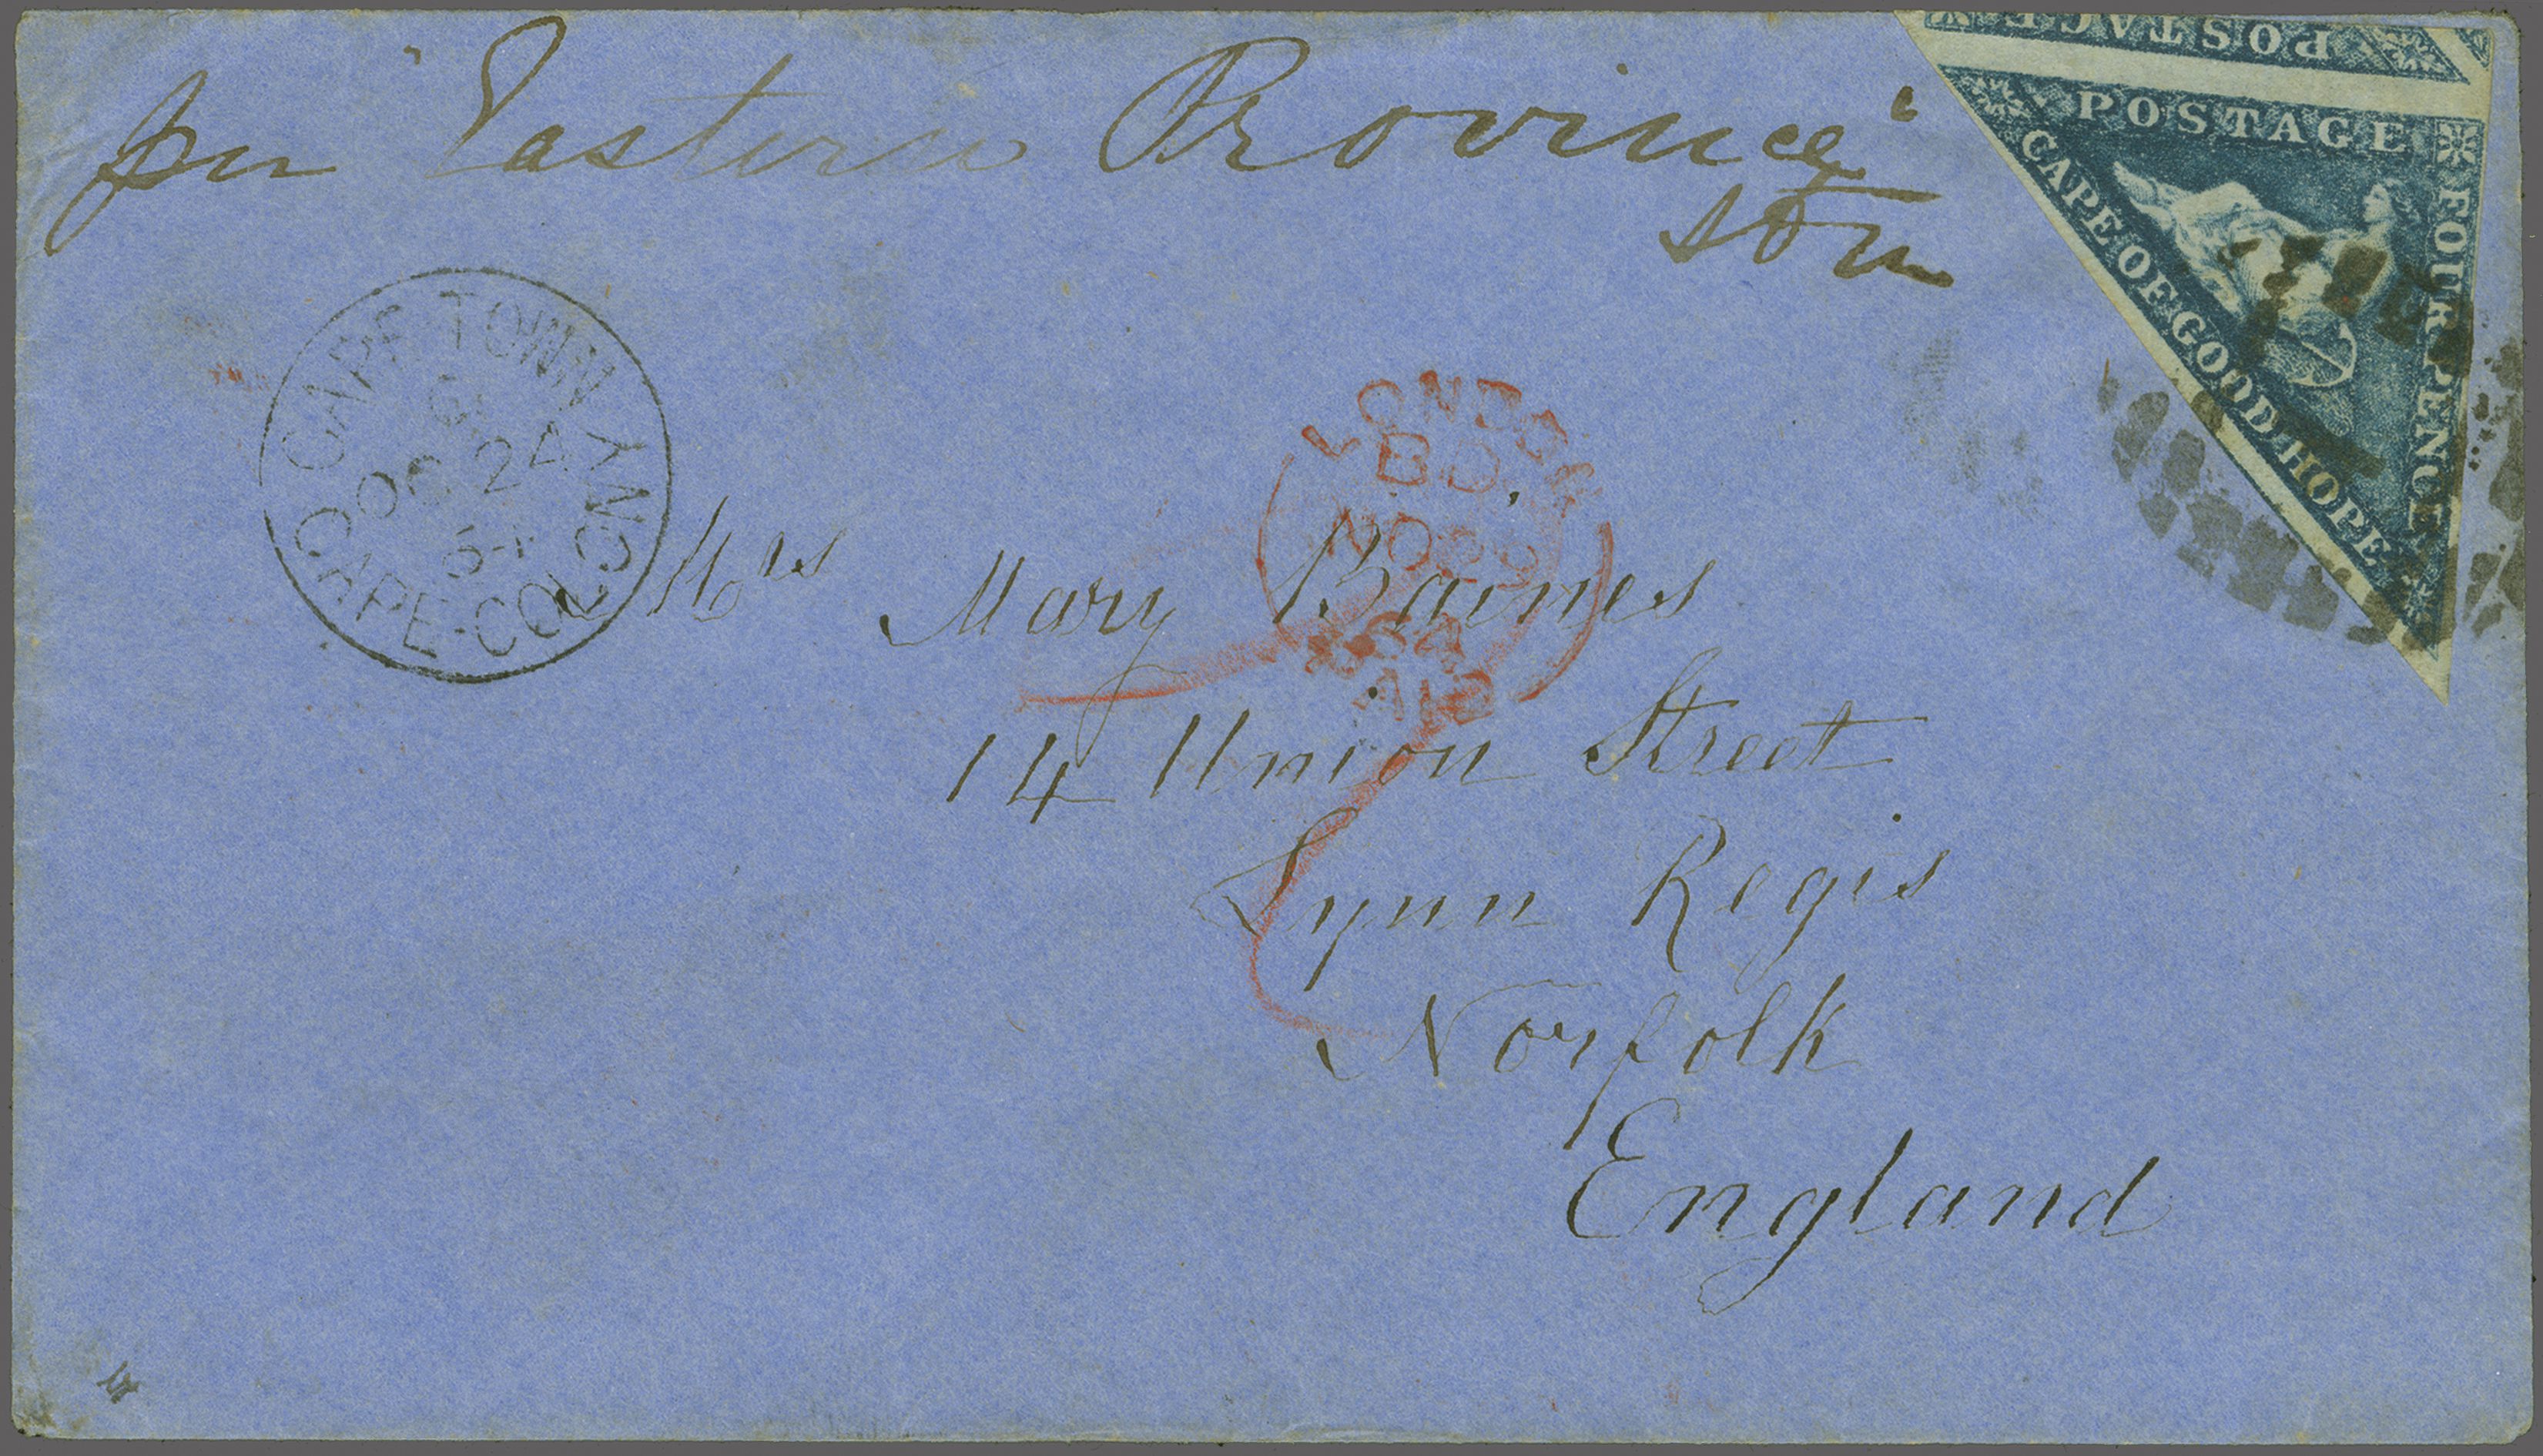 per "Eastern Province"
stm
POSTAGE
POSTAGE
CAPE OF GOOD HOPE
FOUR PENCE
CAPE-TOWN
OC 24
CAPE-COLONY
LONDON
BD
NO
Mrs Mary Baines
14 Union Street
Lynn Regis
Norfolk
England